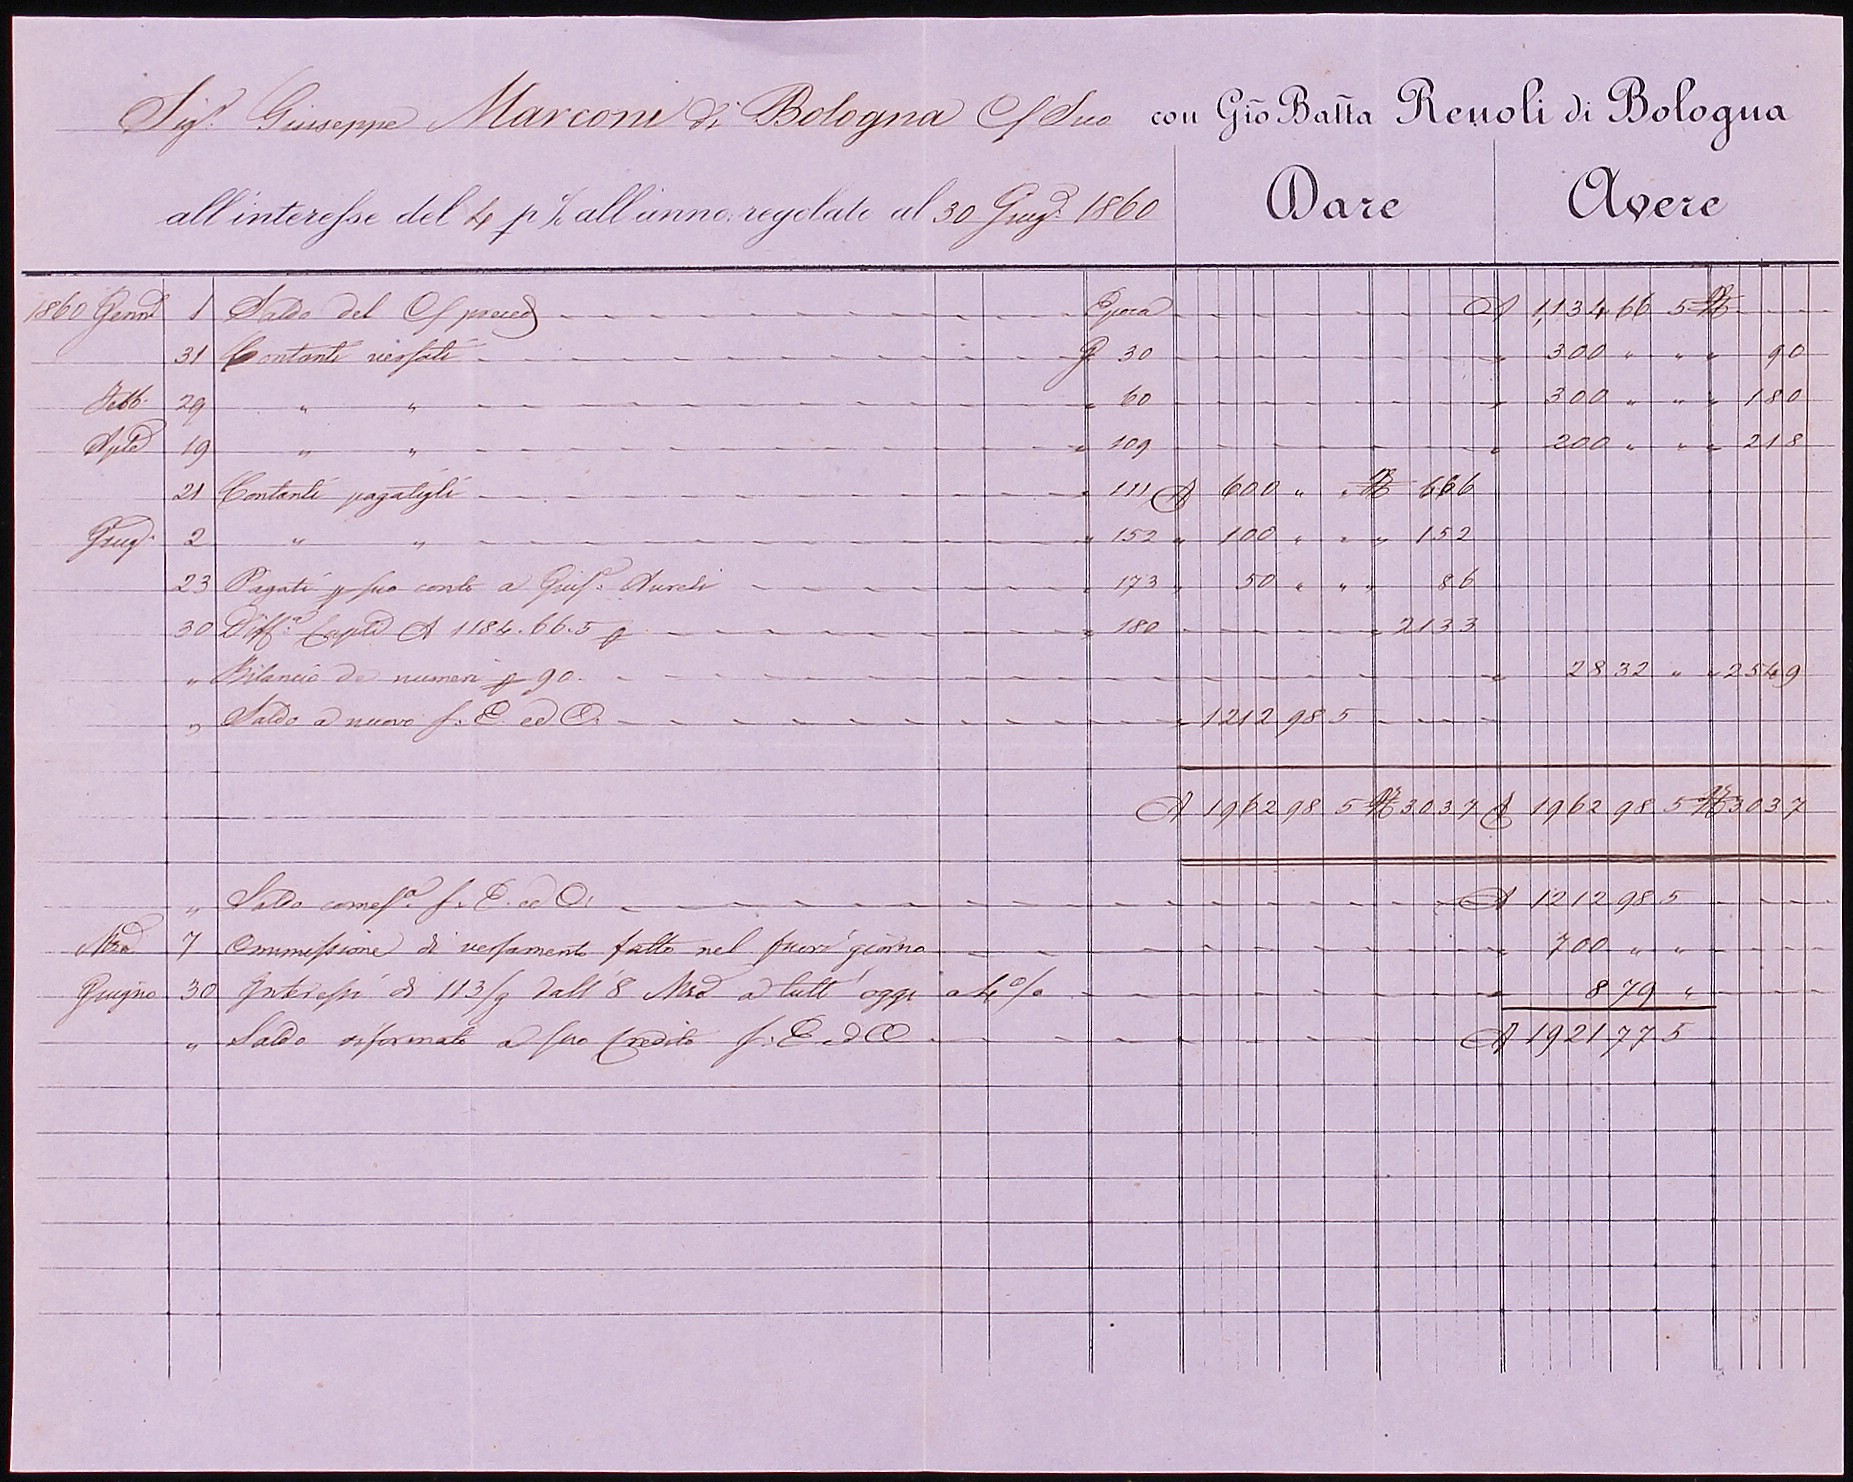 Sigr. Giuseppe Marconi di Bologna C/ Suo con Gio Batta Renoli di Bologna
all'interesse del 4 p % all'anno, regolato al 30 Giugo. 1860 Dare Avere
1860 Genno 1 Saldo del C/ preced Epoca 1134 66 5
31 Contanti versati G 30 " 300 " " " 90
Febb. 29 " " " 60 " 300 " " " 180
Aple 19 " " " 109 " 200 " " " 218
21 Contanti pagatigli " 111 600 " " 666
Giugo. 2 " " " 152 " 100 " " " 152
23 Pagati p suo conto a Aureli " 173 " 50 " " " 86
30 Diffa. Caple 1184.66.5 p " 180 " 2133
" Bilancio de numeri p 90 " 28 32 " " 2549
" Saldo a nuovo s. E. ed O. " 1212 98 5
1962 98 5 3037 1962 98 5 3037
" Saldo s. E. ed O. 1212 98 5
7 Ommissione di versamento fatto nel giorno " 700 " "
Giugno 30 Interessi di 113/g dall' 8 a tutt' oggi a 4 % " 8 79 "
" Saldo riformato a suo Credito s. E. ed O 1921 77 5